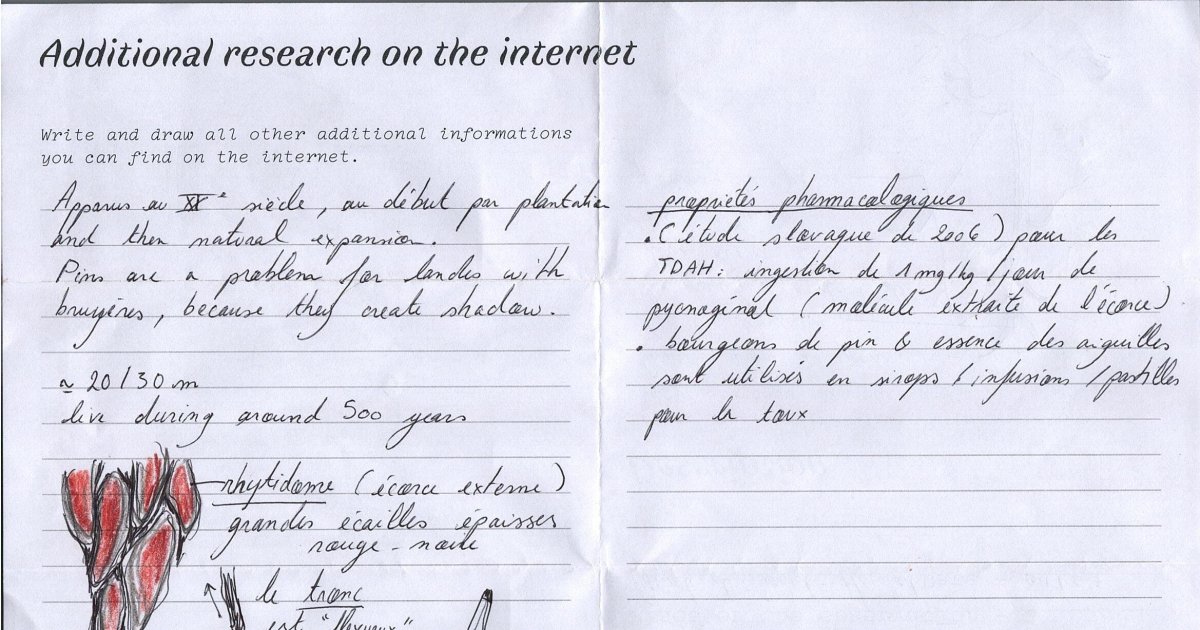 Additional research on the internet
Write and draw all other additional informations
you can find on the internet.
Apparus au XXe siècle, au début par plantation
and then natural expansion.
Pins are a problem for landes with
bruyères, because they create shadow.
≃ 20/30 m
live during around 500 years
rhytidome (écorce externe)
grandes écailles épaisses
rouge - noire
le tronc
est "flexueux"
propriétés pharmacologiques
• (étude slovaque de 2006) pour les
TDAH : ingestion de 1 mg/kg/jour de
pycnogénal (molécule extraite de l'écorce)
• bourgeons de pin & essence des aiguilles
sont utilisés en sirops / infusions / pastilles
pour la toux